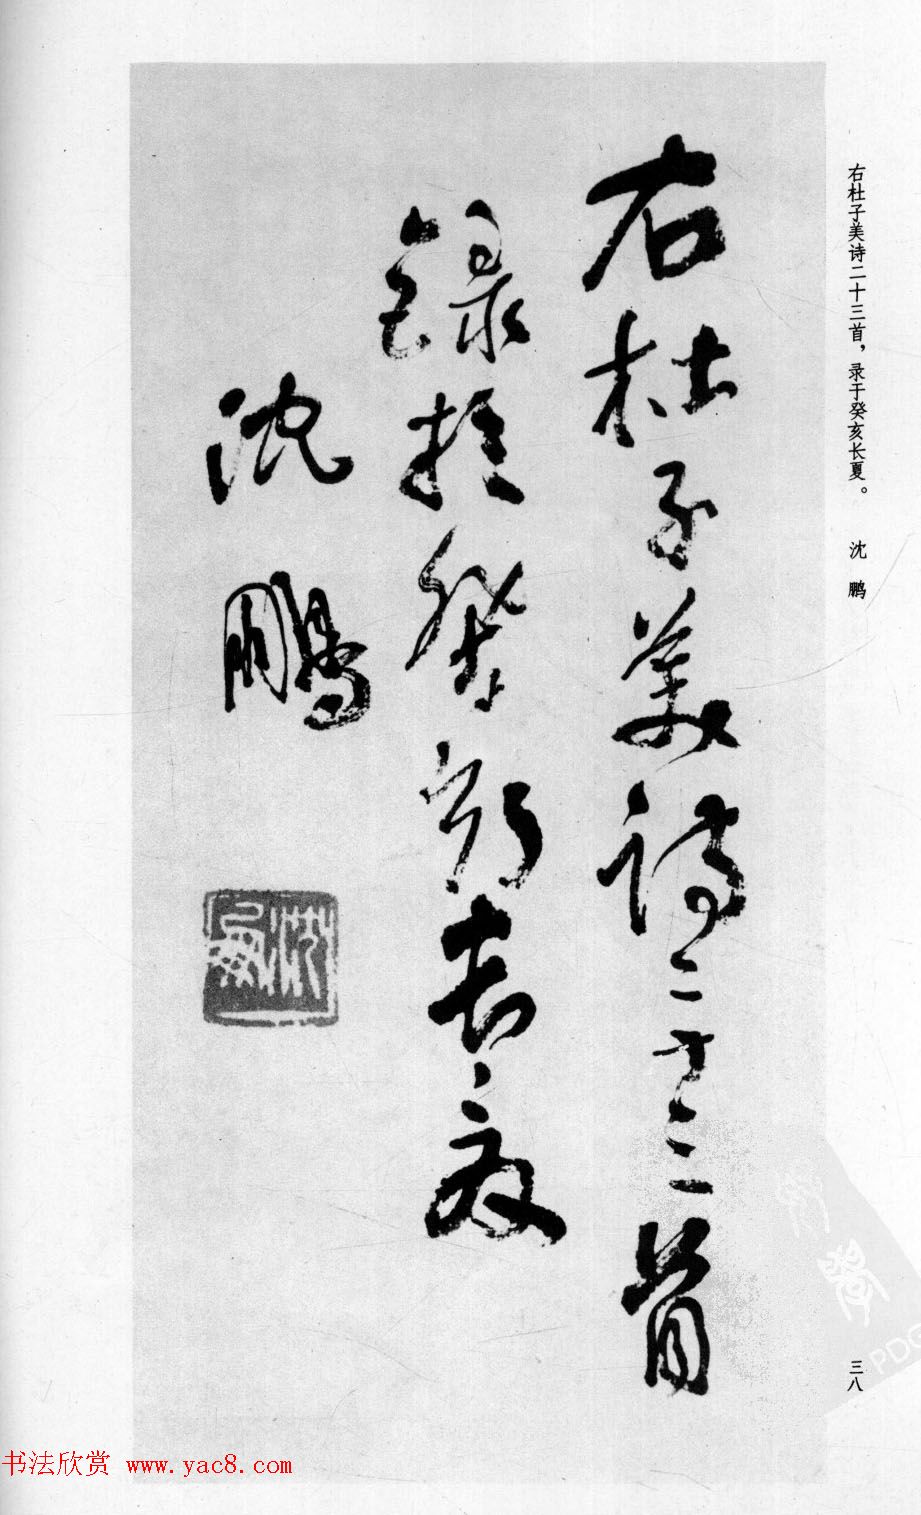 右杜子美诗二十三首，录于癸亥长夏。　沈鹏
右杜子美詩二十三首
錄於癸亥長夏
沈鵬
沈鵬
三八
PDG
书法欣赏 www.yac8.com